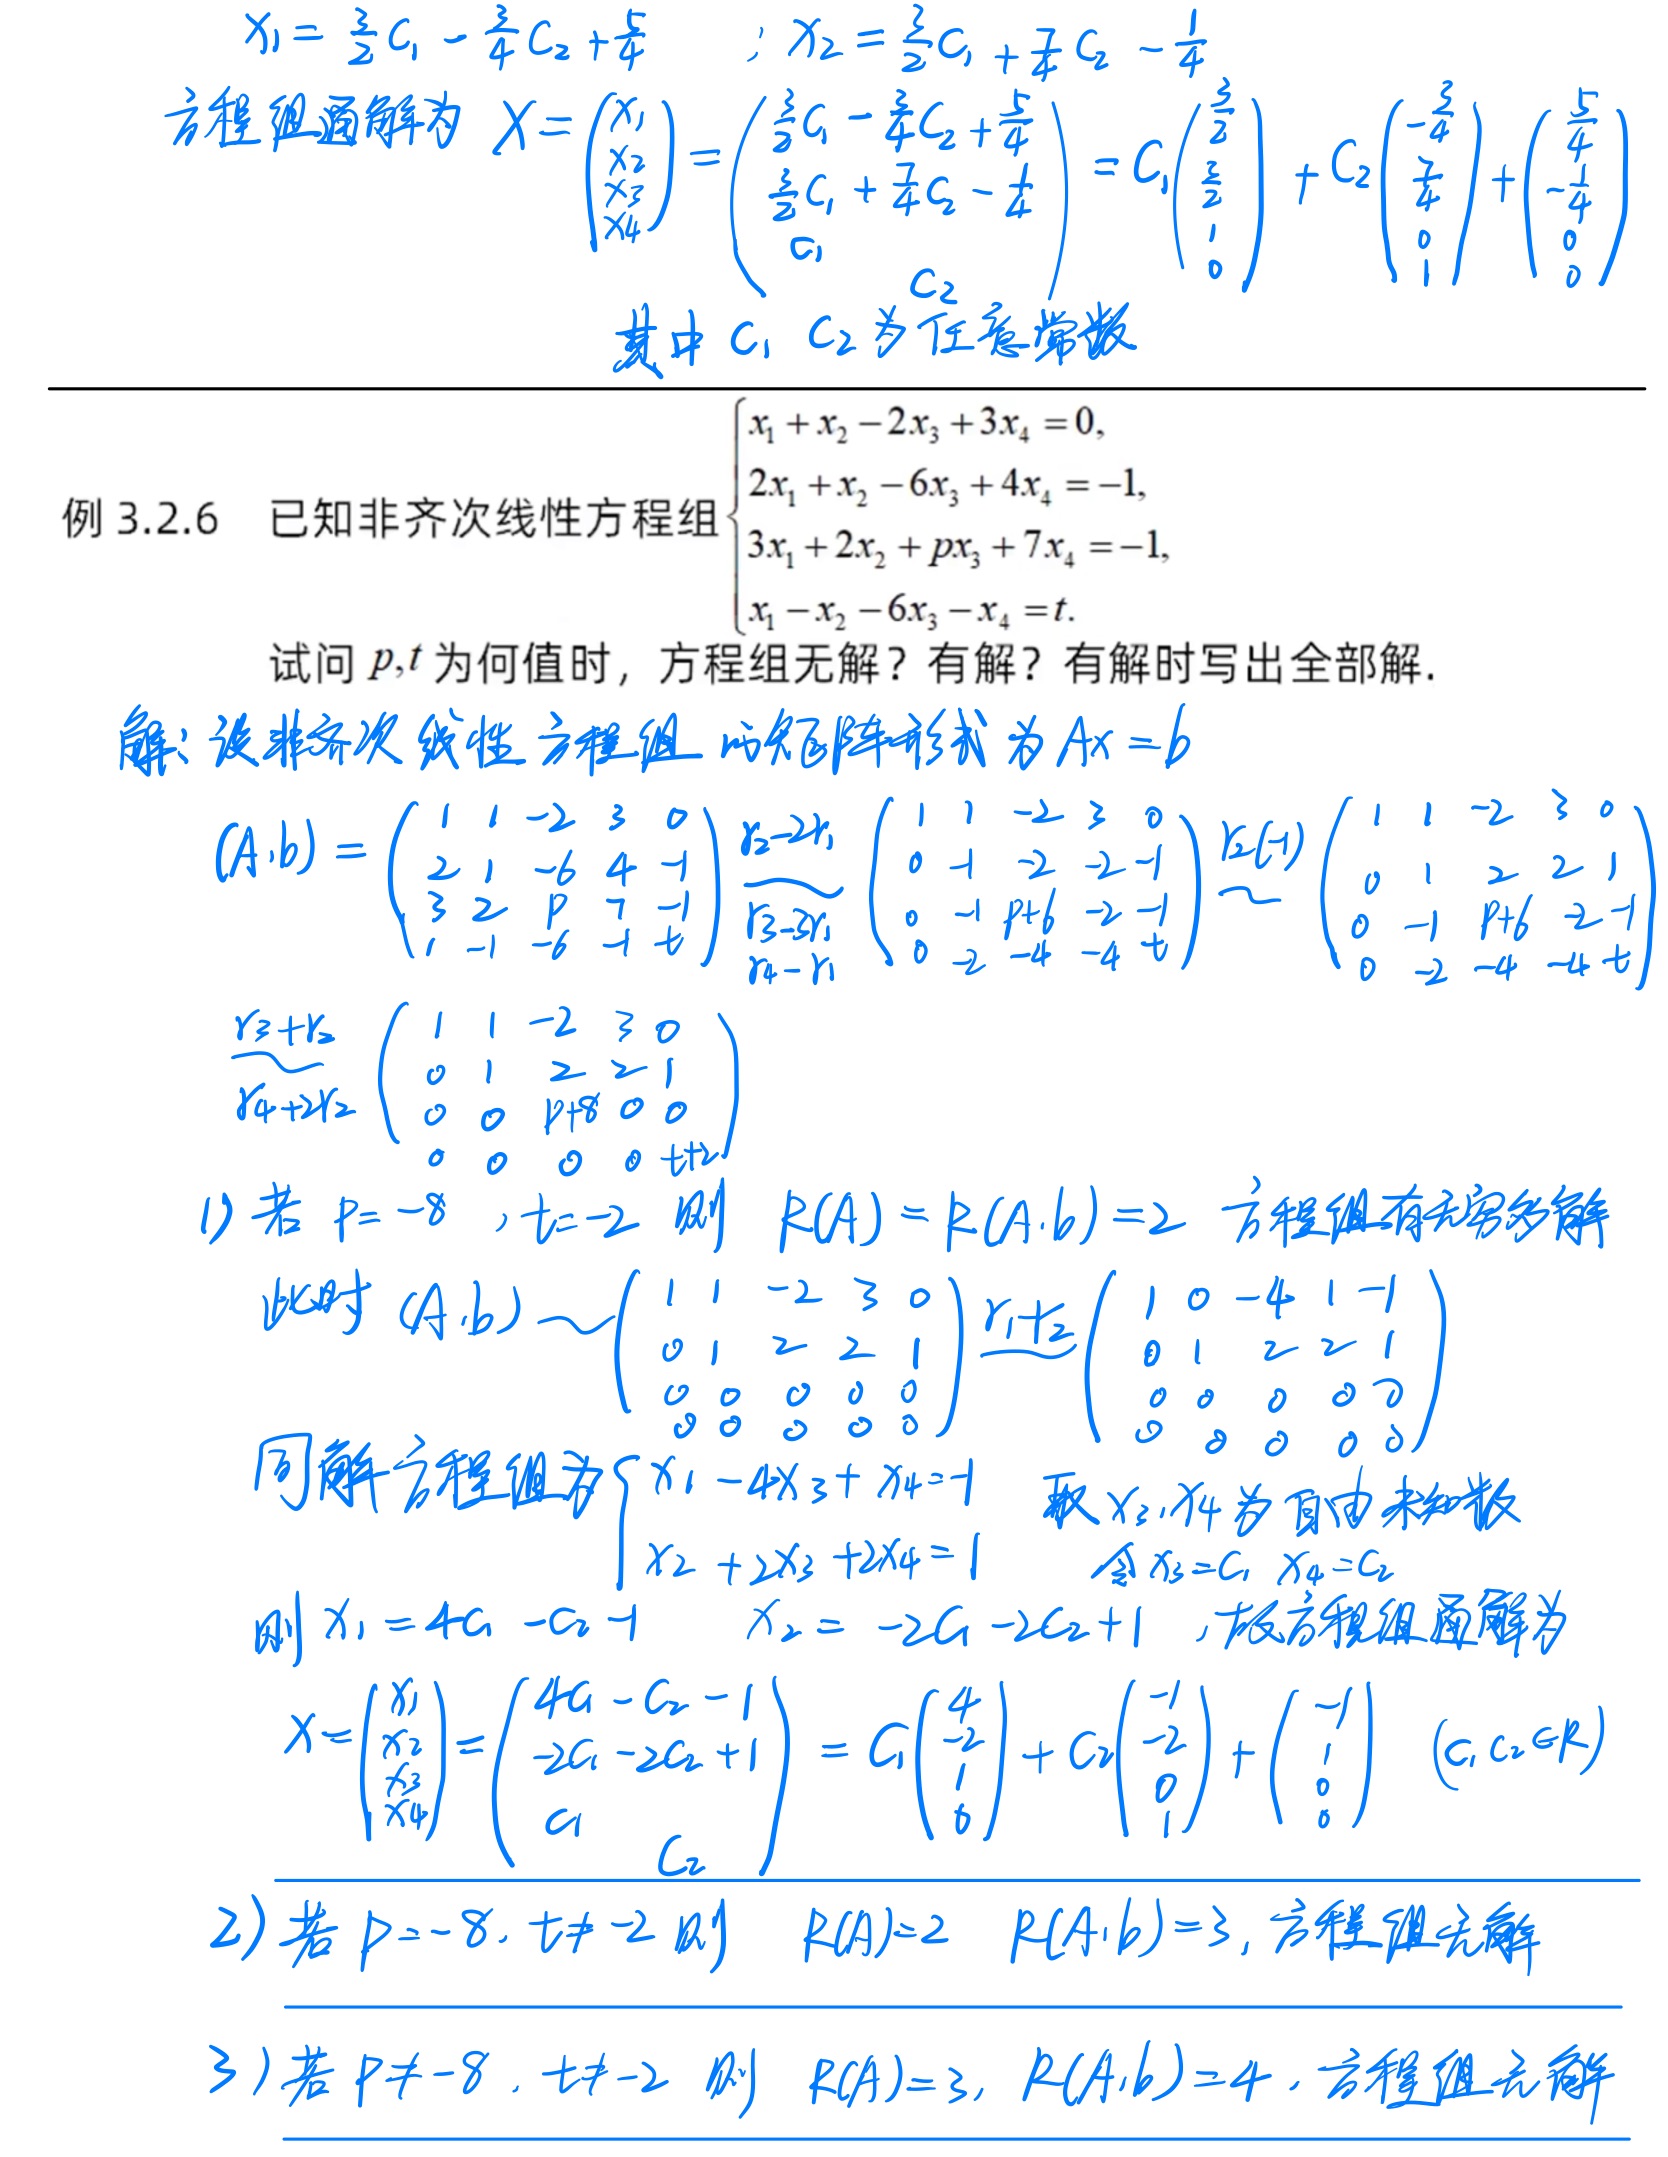 x₁ = 3/2 C₁ - 3/4 C₂ + 5/4 ; x₂ = 3/2 C₁ + 7/4 C₂ - 1/4
方程组通解为 X = (x₁ x₂ x₃ x₄) = (3/2 C₁ - 3/4 C₂ + 5/4, 3/2 C₁ + 7/4 C₂ - 1/4, C₁, C₂) = C₁(3/2, 3/2, 1, 0) + C₂(-3/4, 7/4, 0, 1) + (5/4, -1/4, 0, 0)
其中 C₁ C₂ 为任意常数
例 3.2.6 已知非齐次线性方程组
x₁ + x₂ - 2x₃ + 3x₄ = 0,
2x₁ + x₂ - 6x₃ + 4x₄ = -1,
3x₁ + 2x₂ + px₃ + 7x₄ = -1,
x₁ - x₂ - 6x₃ - x₄ = t.
试问 p,t 为何值时，方程组无解？有解？有解时写出全部解.
解：设非齐次线性方程组的矩阵形式为 Ax = b
(A,b) = (1 1 -2 3 0; 2 1 -6 4 -1; 3 2 p 7 -1; 1 -1 -6 -1 t) r₂-2r₁ ~ r₃-3r₁ r₄-r₁ (1 1 -2 3 0; 0 -1 -2 -2 -1; 0 -1 p+6 -2 -1; 0 -2 -4 -4 t) r₂(-1) ~ (1 1 -2 3 0; 0 1 2 2 1; 0 -1 p+6 -2 -1; 0 -2 -4 -4 t)
r₃+r₂ ~ r₄+2r₂ (1 1 -2 3 0; 0 1 2 2 1; 0 0 p+8 0 0; 0 0 0 0 t+2)
1) 若 p = -8 , t = -2 则 R(A) = R(A,b) = 2 方程组有无穷多解
此时 (A,b) ~ (1 1 -2 3 0; 0 1 2 2 1; 0 0 0 0 0; 0 0 0 0 0) r₁+r₂ ~ (1 0 -4 1 -1; 0 1 2 2 1; 0 0 0 0 0; 0 0 0 0 0)
同解方程组为 { x₁ - 4x₃ + x₄ = -1 取 x₃,x₄ 为自由未知数
x₂ + 2x₃ + 2x₄ = 1 令 x₃ = C₁ x₄ = C₂
则 x₁ = 4C₁ - C₂ - 1 x₂ = -2C₁ - 2C₂ + 1 , 故方程组通解为
X = (x₁ x₂ x₃ x₄) = (4C₁ - C₂ - 1, -2C₁ - 2C₂ + 1, C₁, C₂) = C₁(4, -2, 1, 0) + C₂(-1, -2, 0, 1) + (-1, 1, 0, 0) (C₁ C₂ ∈ R)
2) 若 p = -8, t ≠ -2 则 R(A) = 2 R(A,b) = 3, 方程组无解
3) 若 p ≠ -8, t ≠ -2 则 R(A) = 3, R(A,b) = 4, 方程组无解